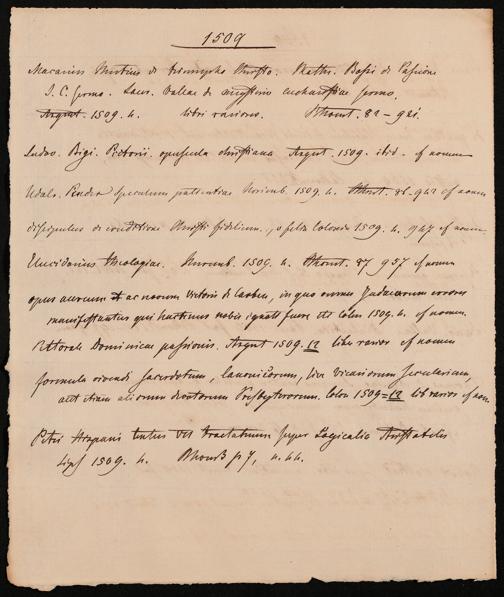 1509
Macarius Mutius de triumpho Christo. Matth. Bossi de Passione
J. C. sermo. Laur. Vallae de mysterio eucharistiae sermo.
Argent. 1509. 4. libri rariores. 82 – 921.
Ludov. Bigi Pictorii. opuscula christiana Argent. 1509. ibid. cf nomen
Udalr. Pinder Speculum patientiae Norimb. 1509. 4. 86. 942 cf nomen
discipulus de conditione Christi fidelium. Colon 1509. 4. 947 cf nomen.
Elucidarius theologiae. Nuremb. 1509. 4. 87 957 cf nomen
opus aureum ac novum Victoris de Carben, in quo omnes Judaeorum errores
manifestantur qui hactenus nobis ignoti fuere etc Colon 1509. 4. cf nomen.
Dominicae passionis. Argent 1509. 12 libr rarior cf nomen
formula vivendi sacerdotum, canonicorum, sive vicariorum secularium,
aut etiam aliorum devotorum Presbyterorum. Colon 1509. 12 lib rarior cf nom.
Petri Hispani textus tractatuum super Logicalia Aristotelis
Lips 1509. 4. p 7,